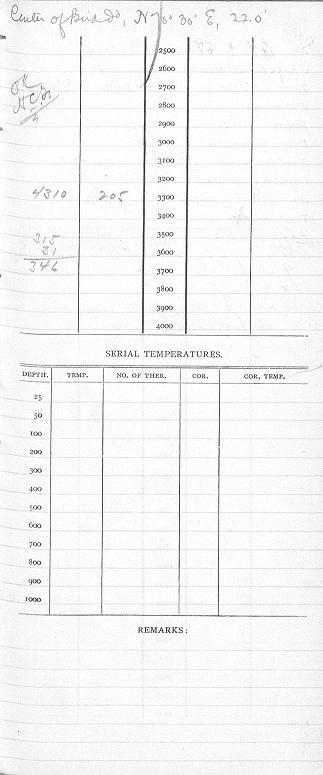 Center of Bird Id, N 76° 30' E, 22.0'
2500
2600
OK
2700
2800
2900
3000
3100
3200
4310 205 3300
3400
315 3500
31 3600
346 3700
3800
3900
4000
SERIAL TEMPERATURES.
DEPTH. TEMP. NO. OF THER. COR. COR. TEMP.
25
50
100
200
300
400
500
600
700
800
900
1000
REMARKS: